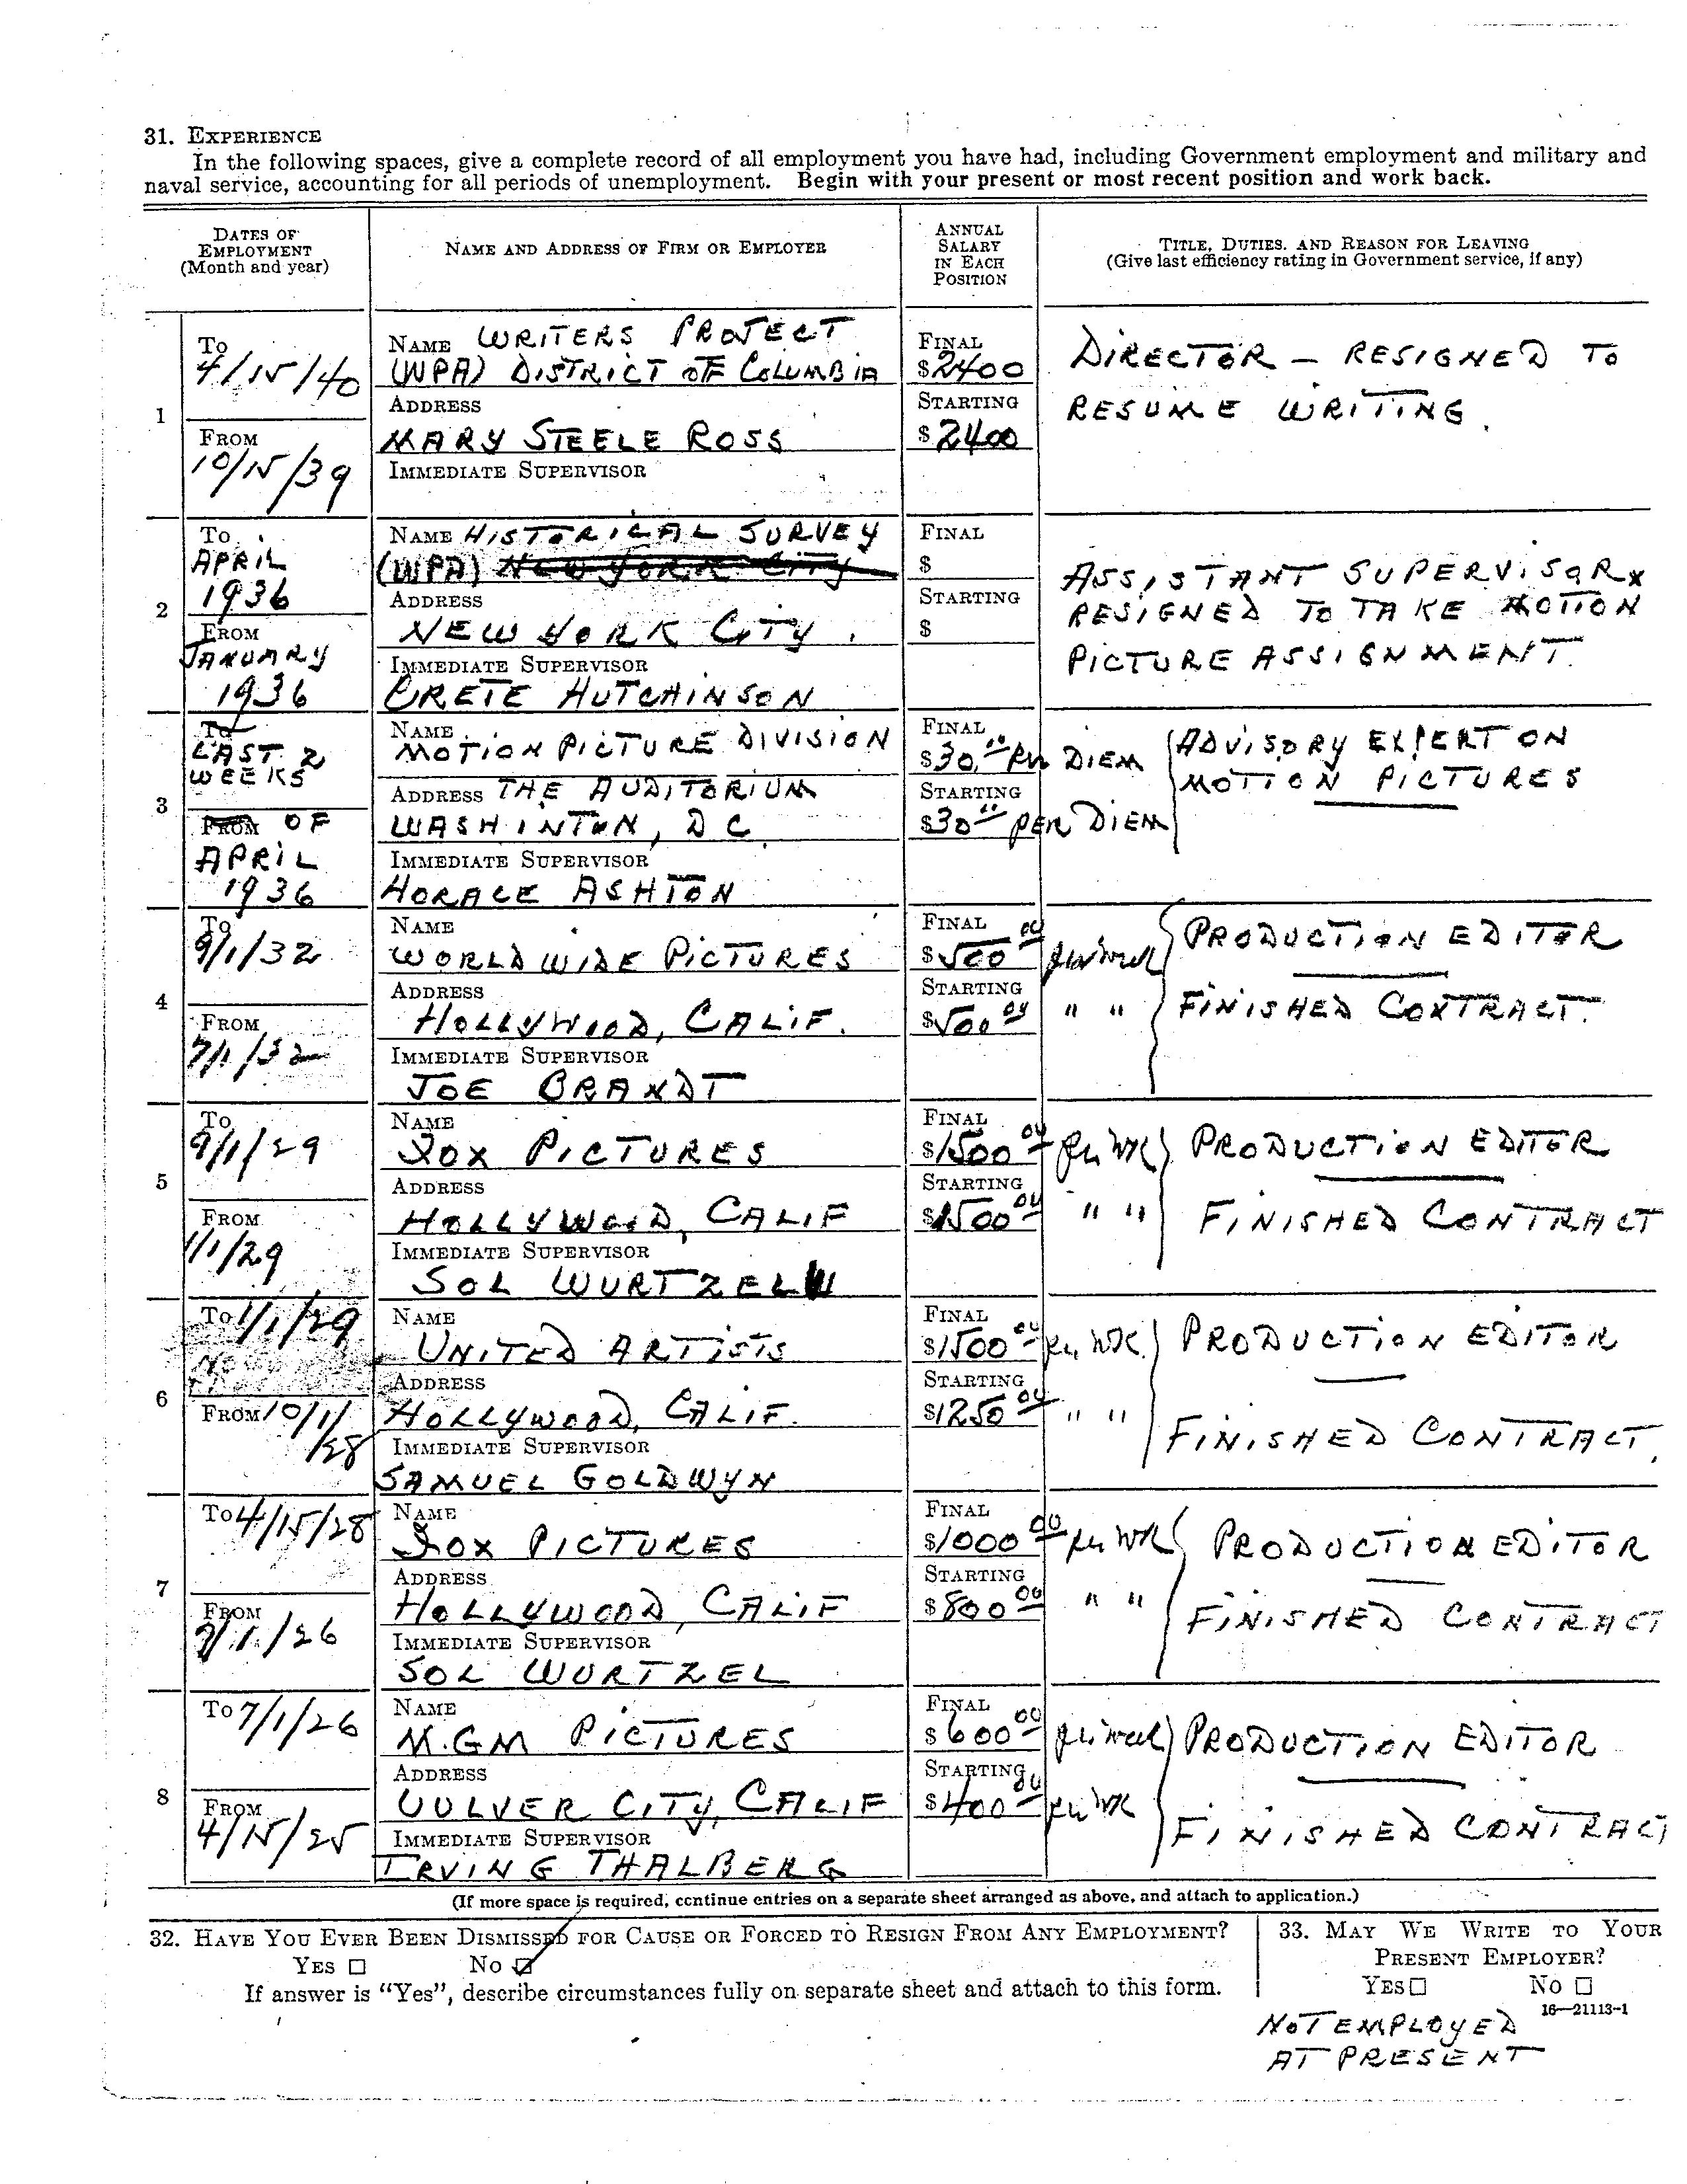 31. EXPERIENCE
In the following spaces, give a complete record of all employment you have had, including Government employment and military and
naval service, accounting for all periods of unemployment. Begin with your present or most recent position and work back.
DATES OF
EMPLOYMENT
(Month and year)
NAME AND ADDRESS OF FIRM OR EMPLOYER
ANNUAL
SALARY
IN EACH
POSITION
TITLE, DUTIES, AND REASON FOR LEAVING
(Give last efficiency rating in Government service, if any)
1
TO
4/15/40
FROM
10/15/39
NAME WRITERS PROJECT
(WPA) DISTRICT OF COLUMBIA
ADDRESS
MARY STEELE ROSS
IMMEDIATE SUPERVISOR
FINAL
$2400
STARTING
$2400
DIRECTOR – RESIGNED TO
RESUME WRITING.
2
TO
APRIL
1936
FROM
JANUARY
1936
NAME HISTORICAL SURVEY
(WPA) NEW YORK CITY
ADDRESS
NEW YORK CITY.
IMMEDIATE SUPERVISOR
CRETE HUTCHINSON
FINAL
$
STARTING
$
ASSISTANT SUPERVISOR
RESIGNED TO TAKE MOTION
PICTURE ASSIGNMENT.
3
TO
LAST 2
WEEKS
FROM OF
APRIL
1936
NAME
MOTION PICTURE DIVISION
ADDRESS THE AUDITORIUM
WASHINTON, D C
IMMEDIATE SUPERVISOR
HORACE ASHTON
FINAL
$30.00 PER DIEM
STARTING
$30.00 PER DIEM
ADVISORY EXPERT ON
MOTION PICTURES
4
TO
9/1/32
FROM
7/1/32
NAME
WORLD WIDE PICTURES
ADDRESS
HOLLYWOOD, CALIF.
IMMEDIATE SUPERVISOR
JOE BRANDT
FINAL
$500.00 per week
STARTING
$500.00 " "
PRODUCTION EDITOR
FINISHED CONTRACT.
5
TO
9/1/29
FROM
1/1/29
NAME
FOX PICTURES
ADDRESS
HOLLYWOOD, CALIF
IMMEDIATE SUPERVISOR
SOL WURTZEL
FINAL
$1500.00 per WK
STARTING
$1500.00 " "
PRODUCTION EDITOR
FINISHED CONTRACT
6
TO 1/1/29
FROM 10/1/
/28
NAME
UNITED ARTISTS
ADDRESS
HOLLYWOOD, CALIF.
IMMEDIATE SUPERVISOR
SAMUEL GOLDWYN
FINAL
$1500.00 per WK.
STARTING
$1250.00 " "
PRODUCTION EDITOR
FINISHED CONTRACT.
7
TO 4/15/28
FROM
7/1/26
NAME
FOX PICTURES
ADDRESS
HOLLYWOOD, CALIF
IMMEDIATE SUPERVISOR
SOL WURTZEL
FINAL
$1000.00 per WK
STARTING
$800.00 " "
PRODUCTION EDITOR
FINISHED CONTRACT
8
TO 7/1/26
FROM
4/15/25
NAME
M.GM PICTURES
ADDRESS
CULVER CITY, CALIF
IMMEDIATE SUPERVISOR
IRVING THALBERG
FINAL
$600.00 per week
STARTING
$400.00 per WK
PRODUCTION EDITOR
FINISHED CONTRACT
(If more space is required, continue entries on a separate sheet arranged as above, and attach to application.)
32. HAVE YOU EVER BEEN DISMISSED FOR CAUSE OR FORCED TO RESIGN FROM ANY EMPLOYMENT?
YES ☐ NO ☑
If answer is "Yes", describe circumstances fully on separate sheet and attach to this form.
33. MAY WE WRITE TO YOUR
PRESENT EMPLOYER?
YES ☐ NO ☐
16—21113-1
NOT EMPLOYED
AT PRESENT